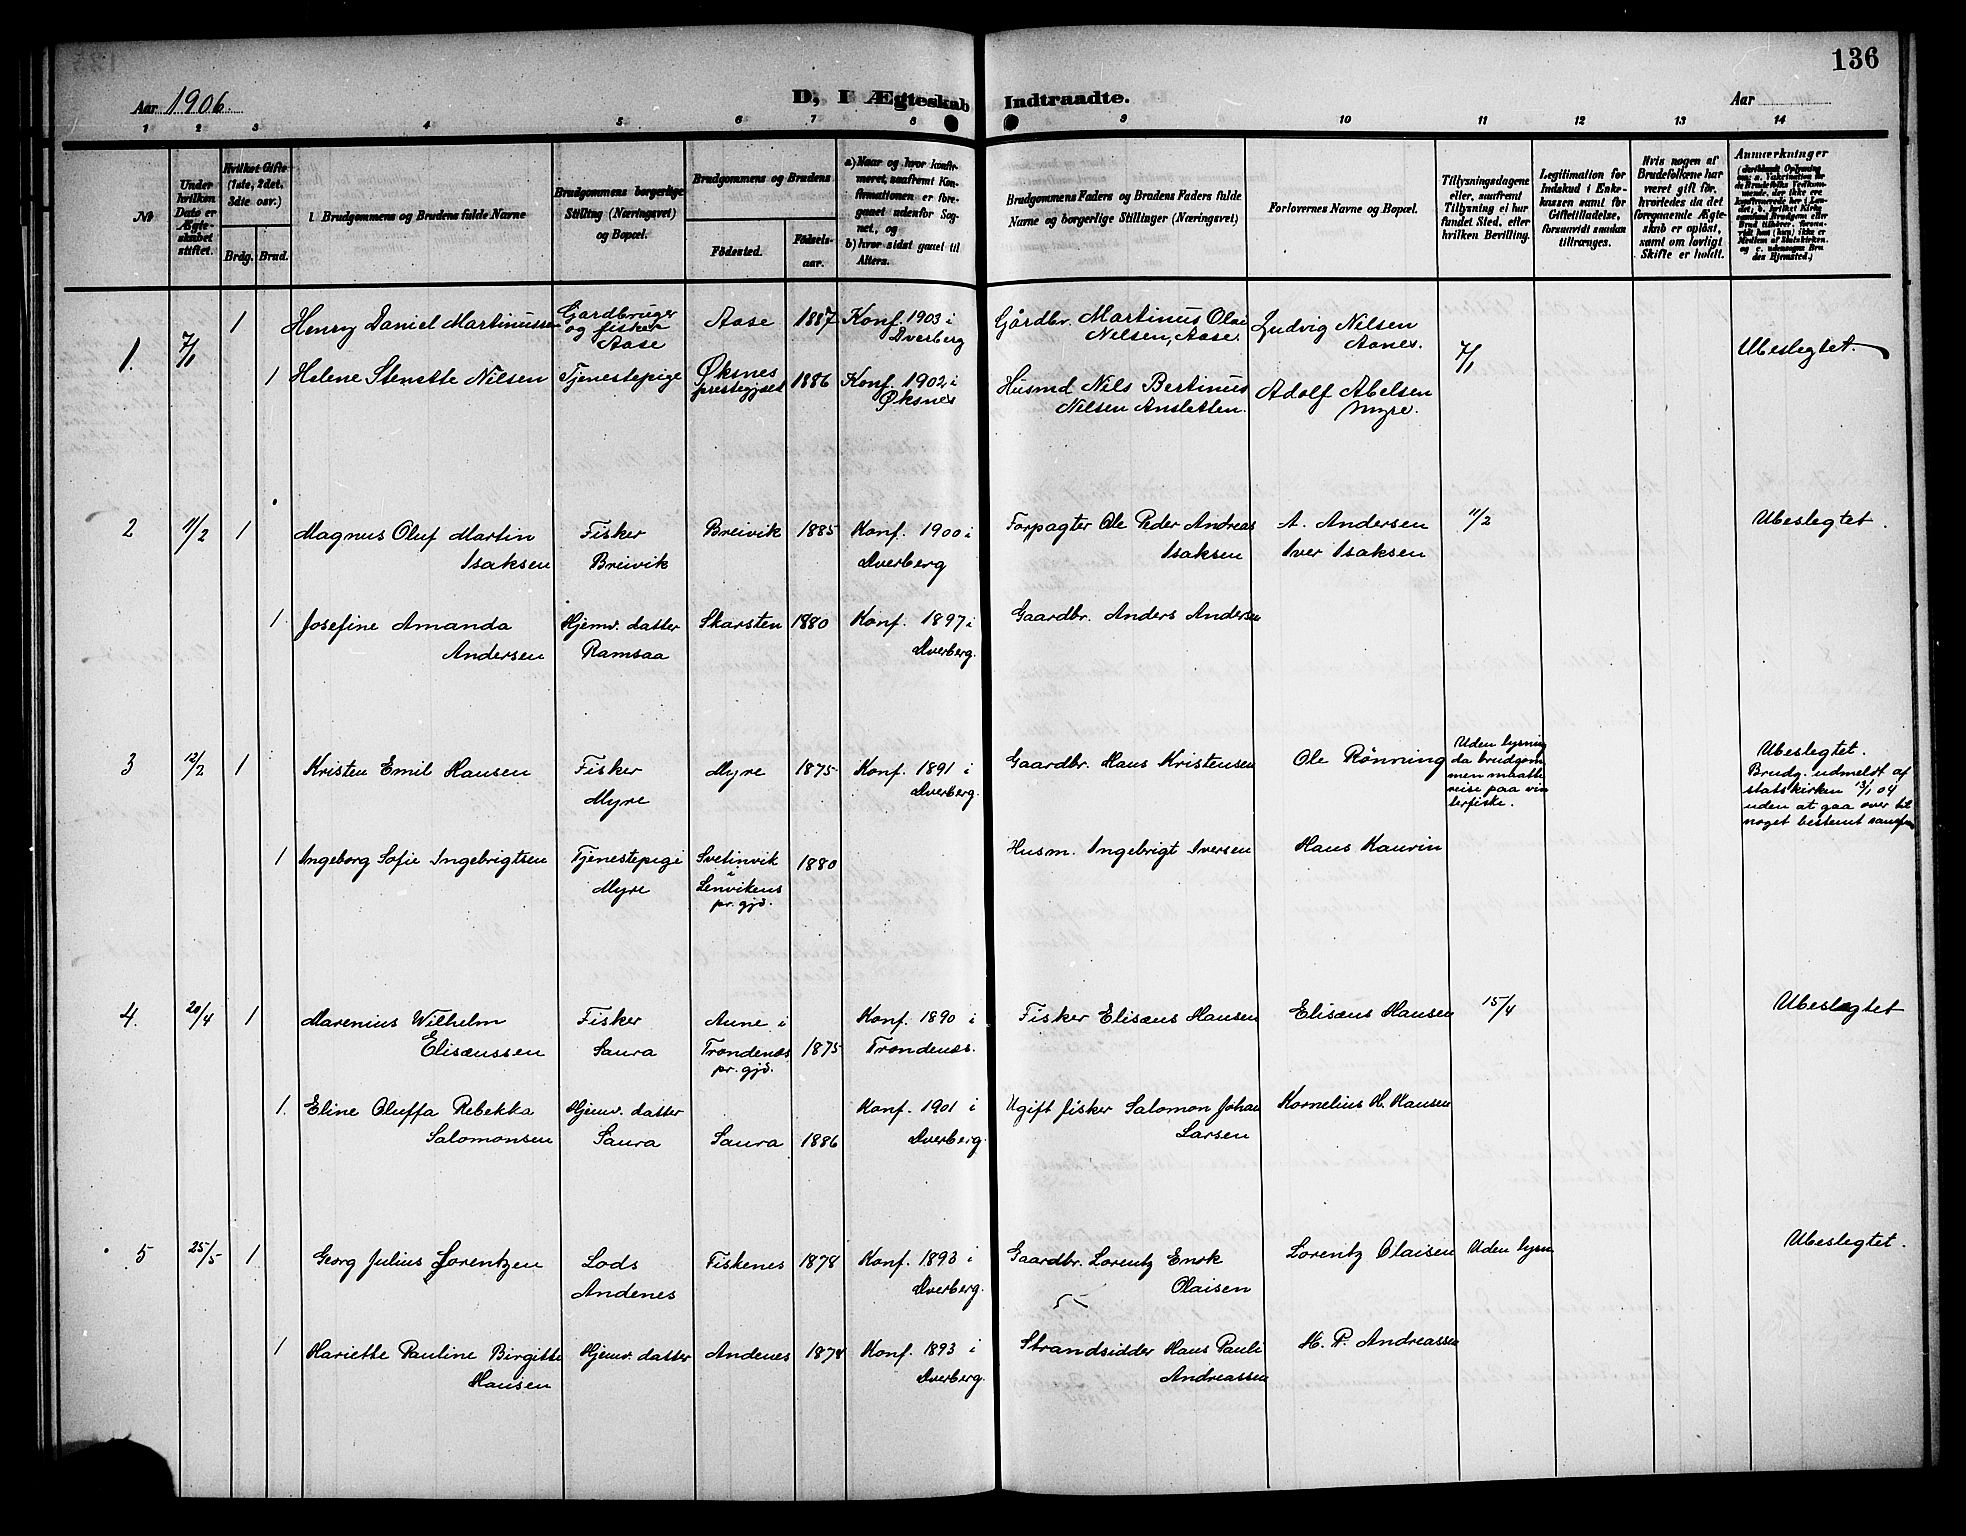 136
Aar 1906.
D, I Ægteskab Indtraadte.
Aar
1 2 3 4 5 6 7 8 9 10 11 12 13 14
No
Under hvilken Dato er Ægteskabet stiftet.
Hvilket Gifte (1ste, 2det, 3dte osv.)
Brdg. Brud.
1. Brudgommens og Brudens fulde Navne
Brudgommens borgerlige Stilling (Næringsvei) og Bopæl.
Brudgommens og Brudens
Födested. Födselsaar.
a) Naar og hvor konfirmeret, saafremt Konfirmationen er foregaaet udenfor Sognet, og
b) hvor sidst gaaet til Alters.
Brudgommens Faders og Brudens Faders fulde Navne og borgerlige Stillinger (Næringsvei)
Forlovernes Navne og Bopæl.
Tillysningsdagene eller, saafremt Tillysning ei har fundet Sted, efter hvilken Bevilling.
Legitimation for Indskud i Enkekassen samt for Giftetilladelse, forsaavidt saadan tiltrænges.
Hvis nogen af Brudefolkene har været gift för, hvorledes da det foregaaende Ægteskab er oplöst, samt om lovligt Skifte er holdt.
Anmærkninger
1. 7/1 1 Henry Daniel Martinussen
Gardbruger og fisker Aase
Aase 1887 Konf. 1903 i Dverberg
Gårdbr. Martinus Olai Nilsen, Aase.
Ludvig Nilsen Aanes.
7/1
Ubeslegtet.
1 Helene Stenette Nilsen
Tjenestepige
Øksnes prestegjæl 1886 Konf. 1902 i Øksnes
Husmd Nils Bertinus Nilsen Ansletten.
Adolf Abelsen Myre.
2 11/2 1 Magnus Oluf Martin Isaksen
Fisker Breivik
Breivik 1885 Konf. 1900 i Dverberg
Forpagter Ole Peder Andreas Isaksen
A. Andersen
Iver Isaksen
11/2
Ubeslegtet.
1. Josefine Amanda Andersen
Hjemv. datter Ramsaa
Skarsten 1880 Konf. 1897 i Dverberg.
Gaardbr. Anders Andersen
3 12/2 1 Kristen Emil Hansen
Fisker Myre
Myre 1875 Konf. 1891 i Dverberg.
Gaardbr. Hans Kristensen
Ole Rønning
Uden lysning
da brudgom
men maatte
reise paa vin
terfiske.
Ubeslegtet.
Brudg. udmeldt af
statskirken 13/1 04
uden at gaa over til
noget bestemt samfun
1 Ingeborg Sofie Ingebrigtsen
Tjenestepige Myre
Svetinvik i Lenvikens pr. gjd. 1880
Husm. Ingebrigt Iversen
Hans Kaurin
4. 20/4 1 Marenius Wilhelm Elisæussen
Fisker Saura
Aune i Trondenæs pr. gjd. 1875
Konf. 1890 i Trondenæs.
Fisker Elisæus Hansen
Elisæus Hansen
15/4
Ubeslegtet
1. Eline Oluffa Rebekka Salomonsen
Hjemv. datter Saura
Saura 1886
Konf. 1901 i Dverberg.
Ugift fisker Salomon Johan Larsen
Kornelius H. Hansen
5 25/5 1 Georg Julius Lorentzen
Lods Andenes
Fiskenes 1878 Konf. 1893 i Dverberg.
Gaardbr. Lorentz Enok Olaisen
Lorentz Olaisen
Uden lysn
Ubeslegtet.
1 Hariette Pauline Birgitte Hansen
Hjemv. datter
Andenes 1878 Konf. 1893 i Dverberg.
Strandsidder Hans Pauli Andreassen
H. P. Andreassen